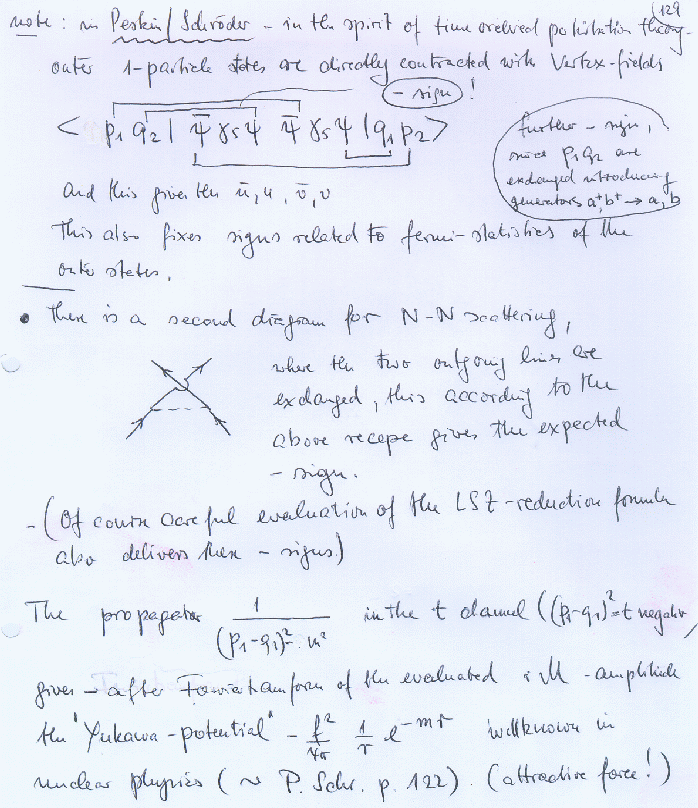 129
note: in Peskin/Schröder - in the spirit of time ordered theory -
outer 1-particle states are directly contracted with Vertex-fields
- sign !
< p₁ q₂ | ψ̄ γ₅ ψ ψ̄ γ₅ ψ | q₁ p₂ >
further - sign,
since p₁ q₂ are
exchanged introducing
generators a⁺, b⁺ → a, b
and this gives the ū, u, v̄, v
This also fixes signs related to fermi-statistics of the
outer states.
• There is a second diagram for N-N scattering,
where the two outgoing lines are
exchanged, this according to the
above recepe gives the expected
- sign.
- (Of course careful evaluation of the LSZ-reduction formula
also delivers these - signs)
The propagator 1/((p₁-q₁)²-m²) in the t channel ((p₁-q₁)²=t negativ)
gives - after Fouriertransform of the evaluated iM -amplitude
the "Yukawa-potential" - f²/4π 1/r e^(-mr) wellknown in
nuclear physics (~ P. Schr. p. 122). (attractive force!)